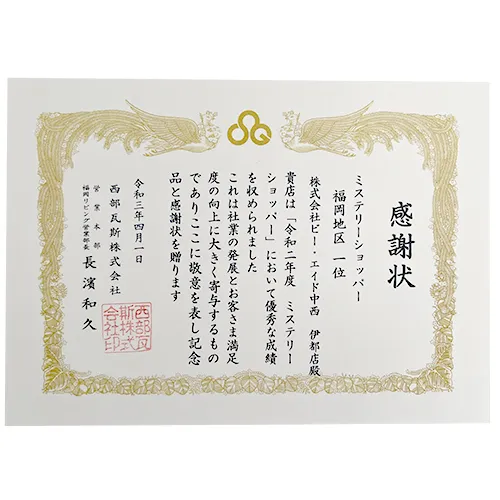 感謝状
ミステリーショッパー
福岡地区　一位
株式会社ビー・エイド中西　伊都店殿
貴店は「令和二年度　ミステリー
ショッパー」において優秀な成績
を収められました
これは社業の発展とお客さま満足
度の向上に大きく寄与するもの
でありここに敬意を表し記念
品と感謝状を贈ります
令和三年四月一日
西部瓦斯株式会社
営業本部
福岡リビング営業部長
長濱和久
西部瓦
斯株式
会社印